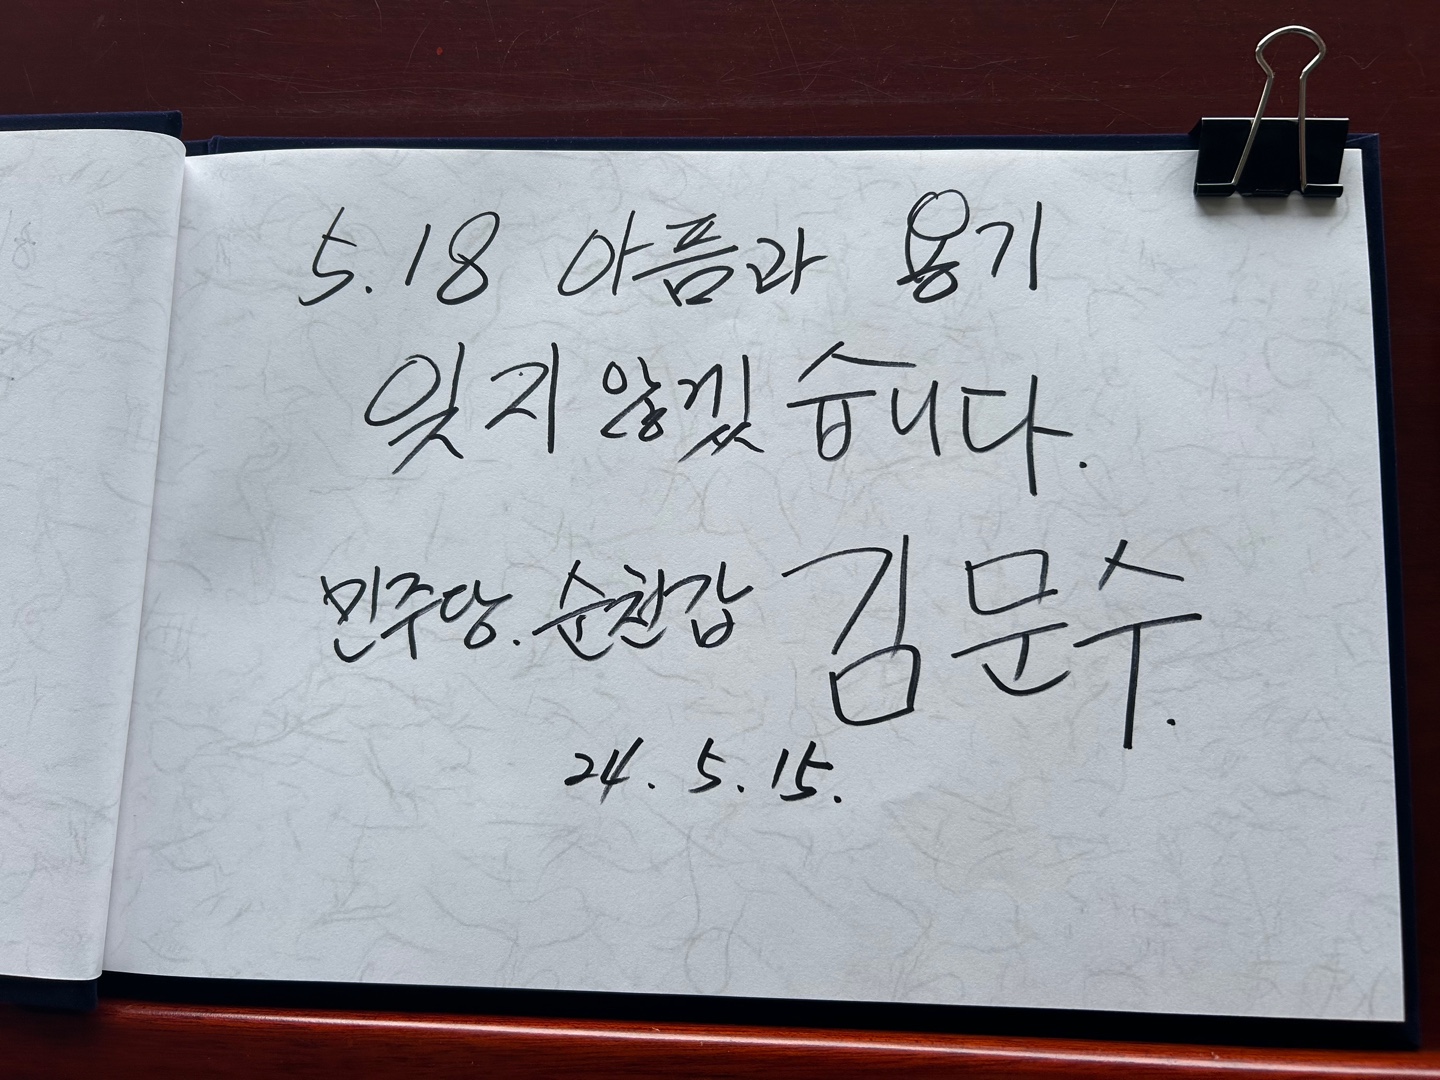 5.18 아픔과 용기
잊지 않겠습니다.
민주당. 순천갑 김문수.
24. 5. 15.